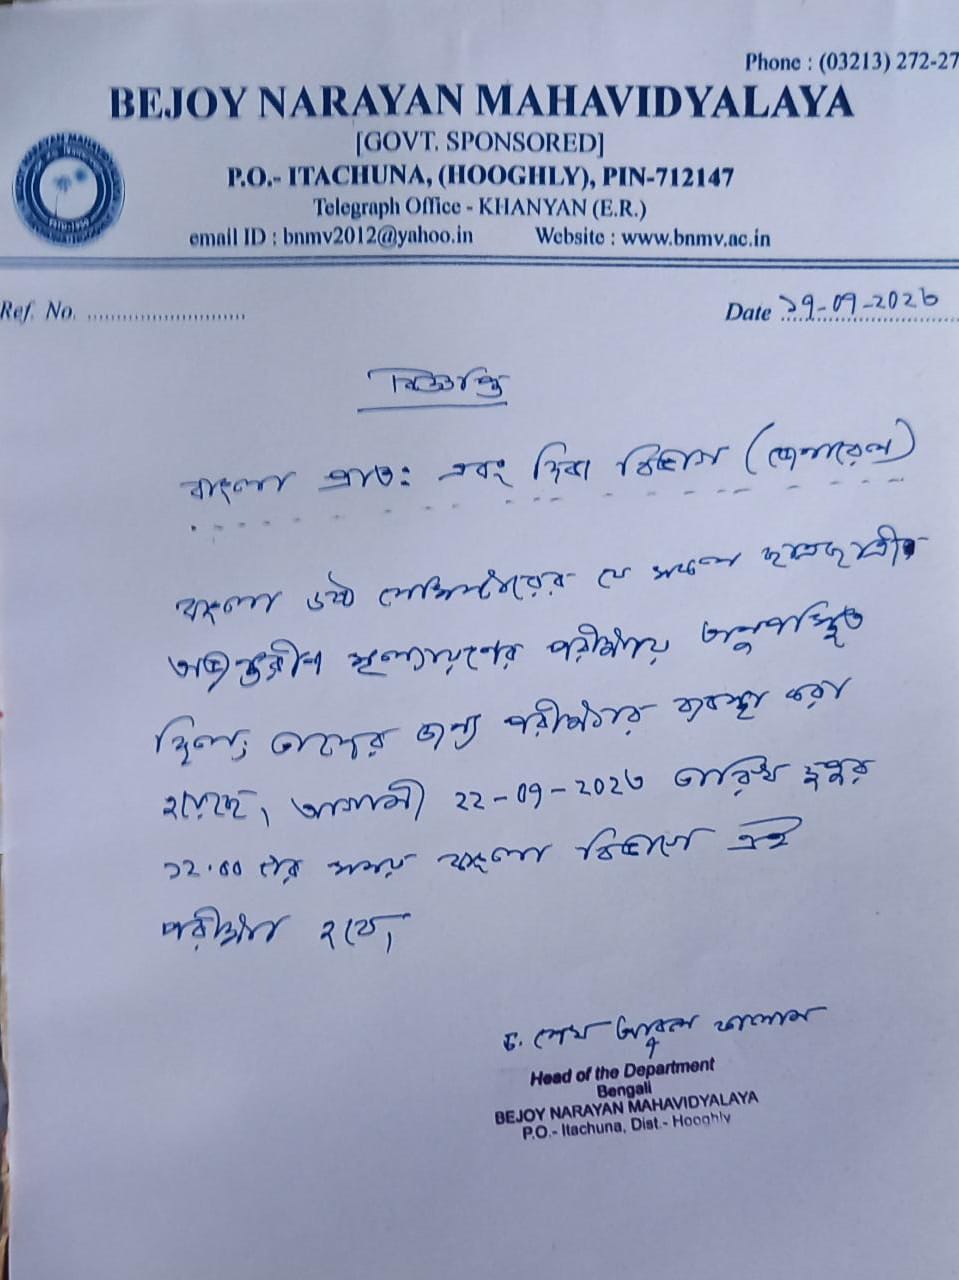 Phone : (03213) 272-27
BEJOY NARAYAN MAHAVIDYALAYA
[GOVT. SPONSORED]
P.O.- ITACHUNA, (HOOGHLY), PIN-712147
Telegraph Office - KHANYAN (E.R.)
email ID : bnmv2012@yahoo.in Website : www.bnmv.ac.in
Ref. No. ..........................
Date ১৭-০৭-২০২৬
বিজ্ঞপ্তি
বাংলা প্রাতঃ এবং দিবা বিভাগ (জেনারেল)
বাংলা ৬ষ্ঠ সেমিস্টারের যে সকল ছাত্রছাত্রী
অভ্যন্তরীণ মূল্যায়ণের পরীক্ষায় অনুপস্থিত
ছিল, তাদের জন্য পরীক্ষার ব্যবস্থা করা
হয়েছে, আগামী ২২-০৭-২০২৬ তারিখ দুপুর
১২.০০ টার সময় বাংলা বিভাগে এই
পরীক্ষা হবে,
ড. শেখ আবুল কালাম
Head of the Department
Bengali
BEJOY NARAYAN MAHAVIDYALAYA
P.O.- Itachuna, Dist.- Hooghly